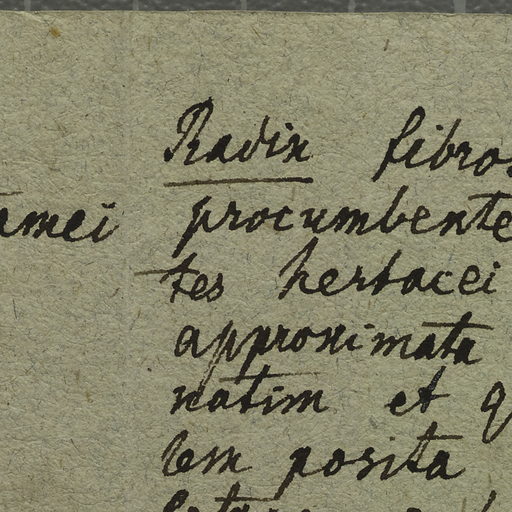 Radix fibros
amei procumbente
tes herbacei
approximata
natim et q
lem posita